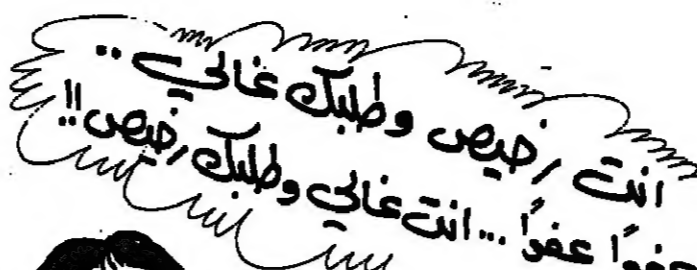 انت رخيص وطلبك غالي ..
عفوًا عفوًا ... انت غالي وطلبك رخيص !!